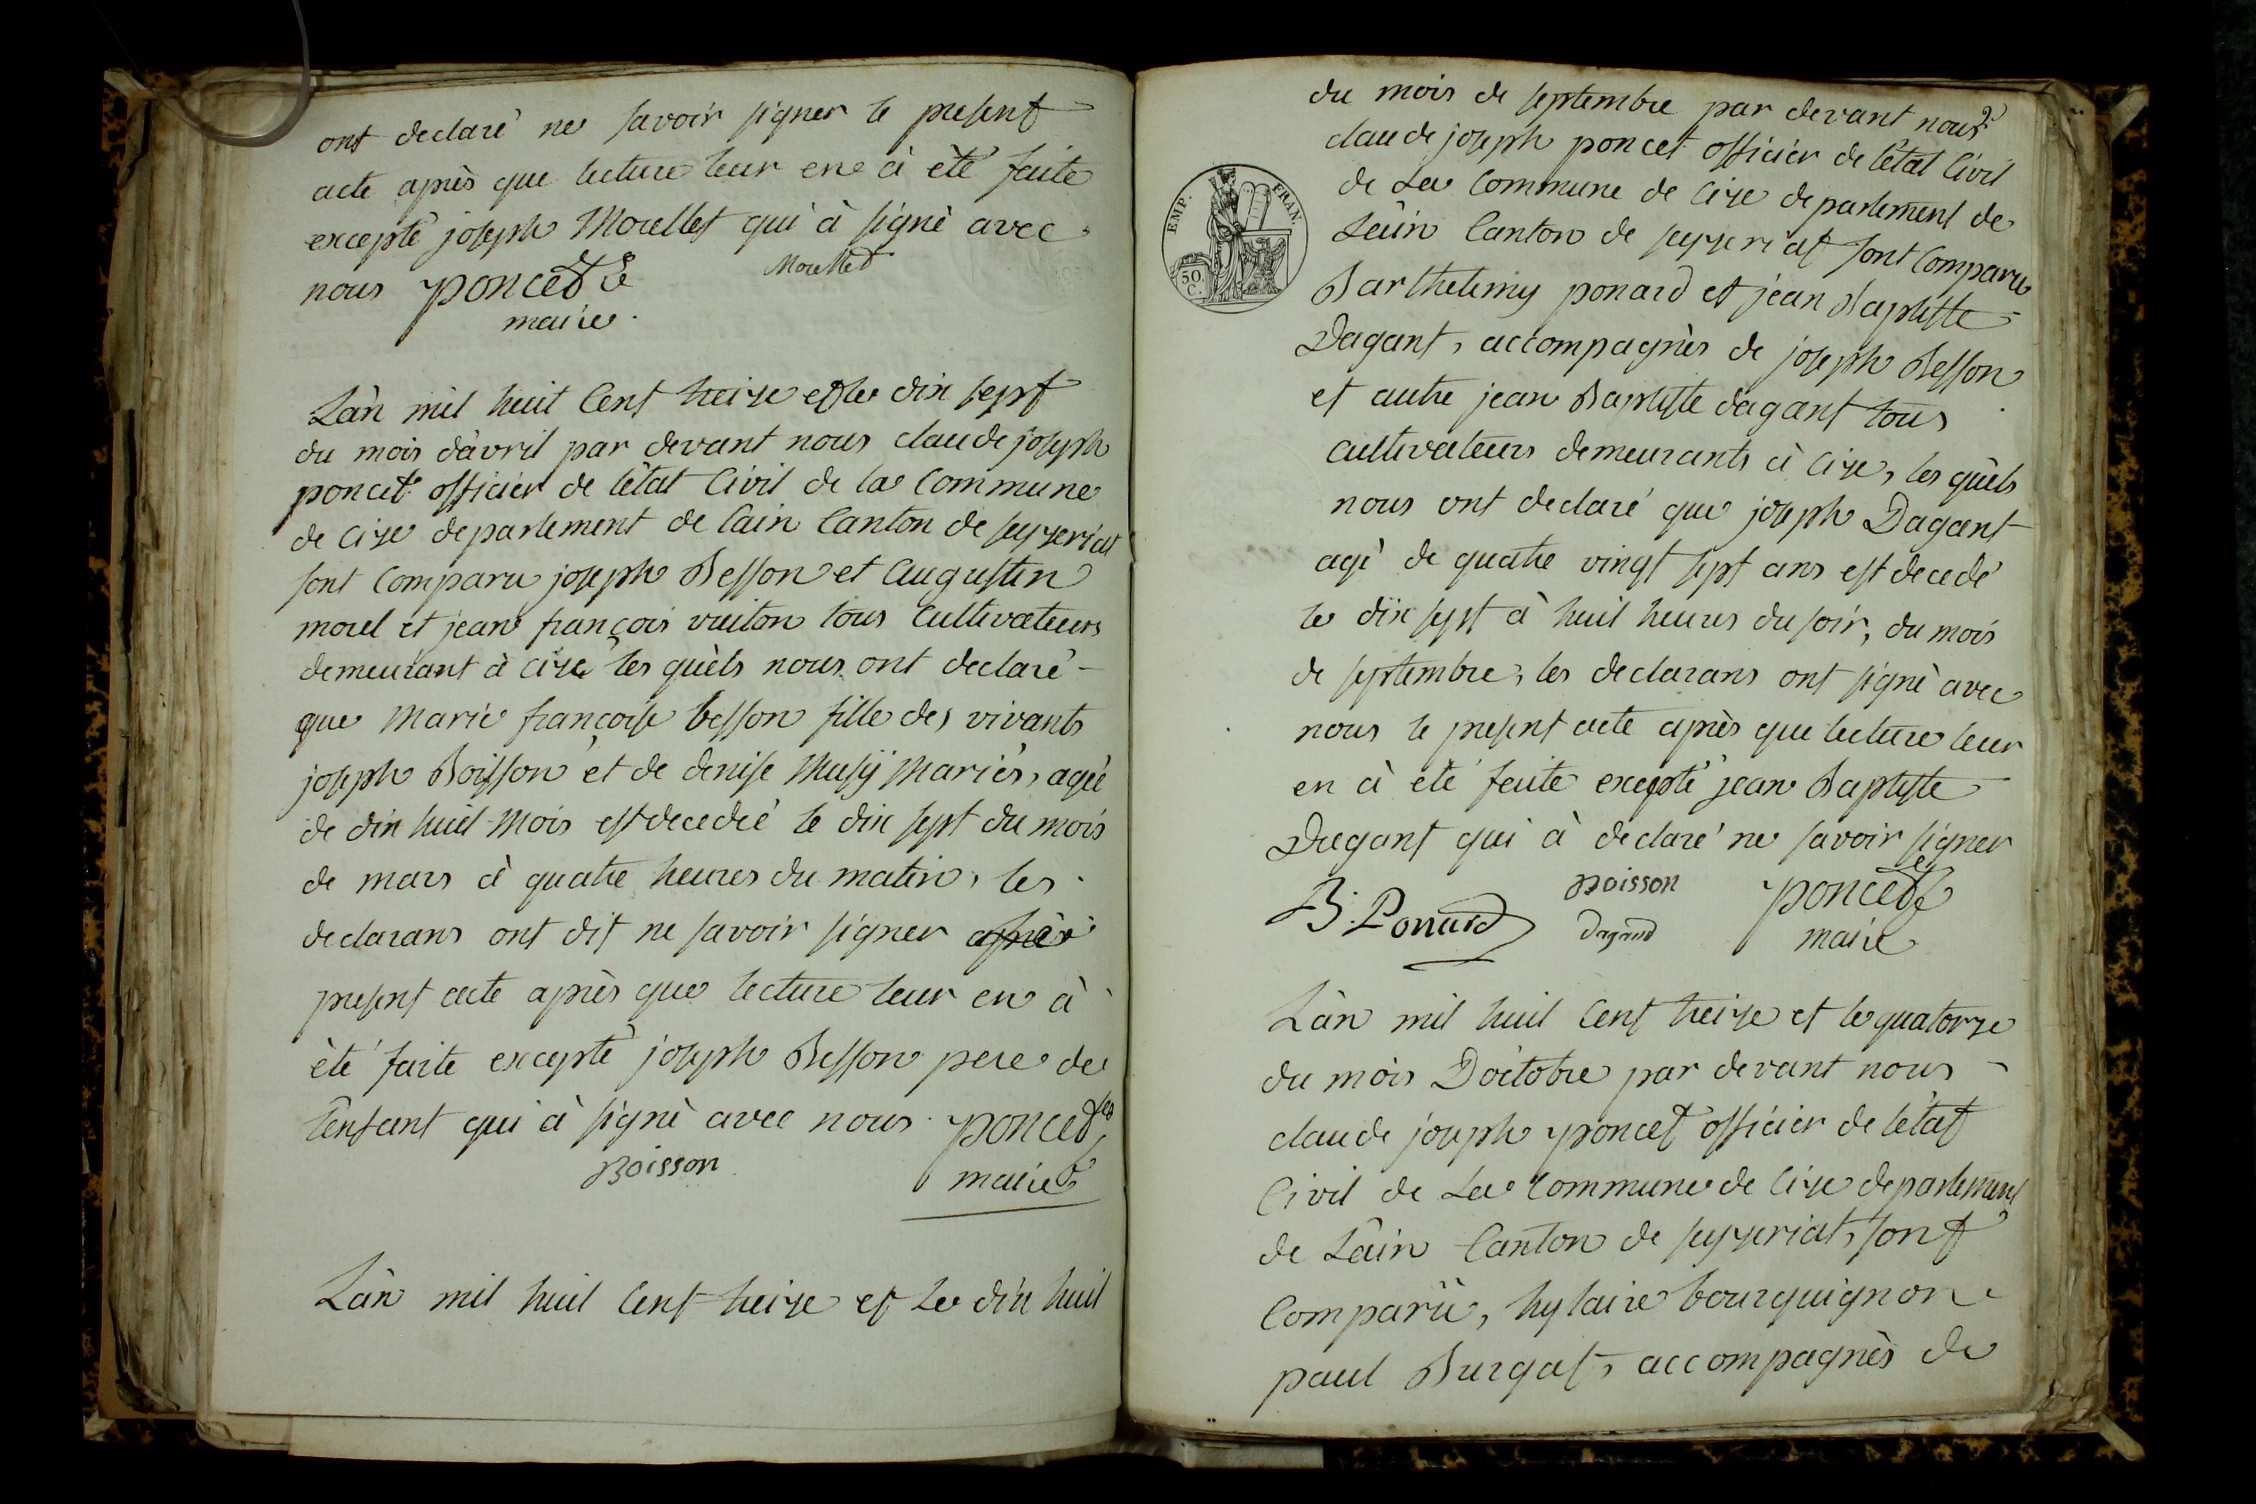 ont declaré ne savoir signer le present
acte après que lecture leur en à èté faite
excepté joseph Morellet qui à signè avec
nous poncet
Morellet
maire
Làn mil huit Cent treize et le dix sept
du mois dàvril par devant nous claude joseph
poncet officier de lètat Civil de la Commune
de Cize departement de Lain Canton de seyzeriat
sont Comparu joseph Besson et augustin
morel et jean françois vuiton tous Cultivateurs
demeurant à cize les quèls nous ont declaré
que Marie françoise besson fille des vivants
joseph Boisson et de denise Musÿ Mariés, agèe
de dix huit Mois est decedèe le dix sept du mois
de mars à quatre heures du matin, les
declarans ont dit ne savoir signer
present acte après que lecture leur en à
èté faite excepté joseph Besson pere de
lènfant qui à signè avec nous poncet
Boisson
maire
Làn mil huit Cent treize et Le dix huit
du mois de septembre par devant nous
claude joseph poncet officier de lètat Civil
de La Commune de Cize departement de
Lâin Canton de seyzeriat sont Comparu
EMP. FRAN.
50 C.
Barthelemy ponard et jean Baptiste
Dagant, accompagnès de joseph Besson
et autre jean Baptiste dagant tous
Cultivateurs demeurants à Cize, les quèls
nous ont declaré que joseph Dagant
agè de quatre vingt sept ans est decedé
le dix sept à huit heures du soir, du mois
de septembre, les declarans ont signè avec
nous le present acte après que lecture leur
en à èté faite excepté jean Baptiste
Dagant qui à declaré ne savoir signer
Boisson poncet
B. Ponard Dagand maire
Làn mil huit Cent treize et le quatorze
du mois Dòctobre par devant nous
claude joseph poncet officier de lètat
Civil de La Commune de Cize departement
de Làin Canton de seyzeriat, sont
Comparû, hylaire bourguignon
paul Burgat, accompagnès de